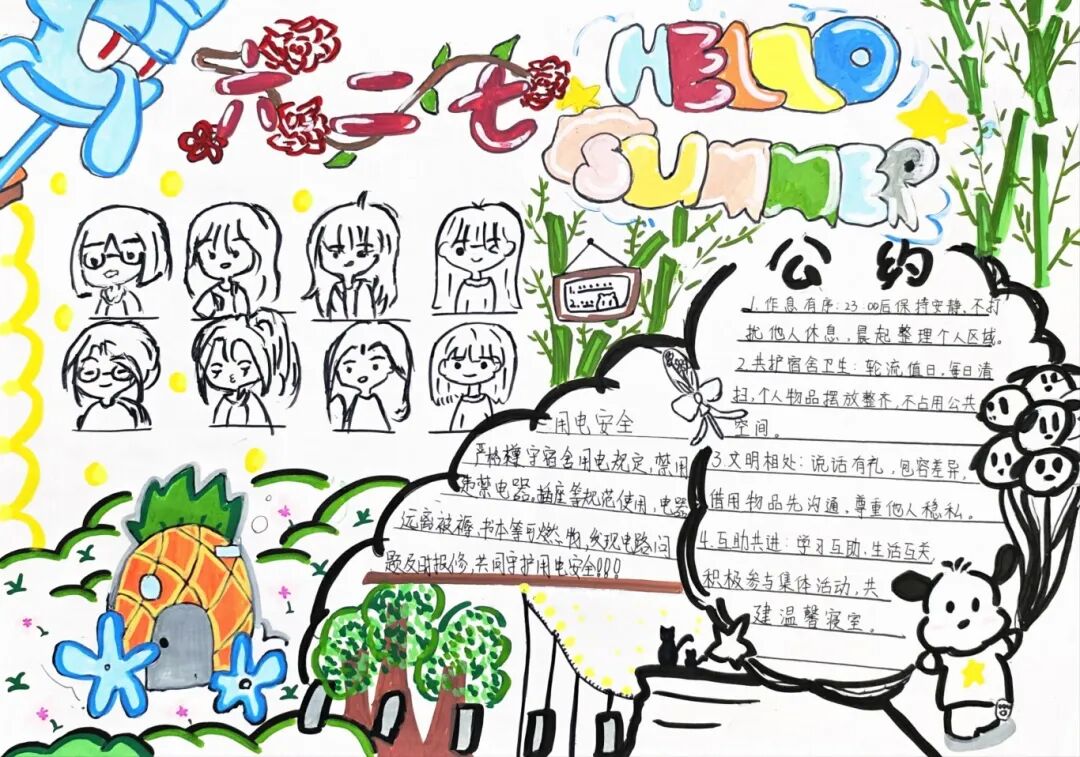 六二七
HELLO
SUMMER
公约
1.作息有序:23:00后保持安静,不打
扰他人休息,晨起整理个人区域。
2.共护宿舍卫生:轮流值日,每日清
扫,个人物品摆放整齐,不占用公共
空间。
3.文明相处:说话有礼,包容差异,
借用物品先沟通,尊重他人稳私。
4.互助共进:学习互助,生活互关,
积极参与集体活动,共
建温馨寝室。
用电安全
严格遵守宿舍用电规定,禁用
违禁电器。插座等规范使用,电器
远离被褥、书本等可燃物,发现电路问
题及时报修,共同守护用电安全!!!